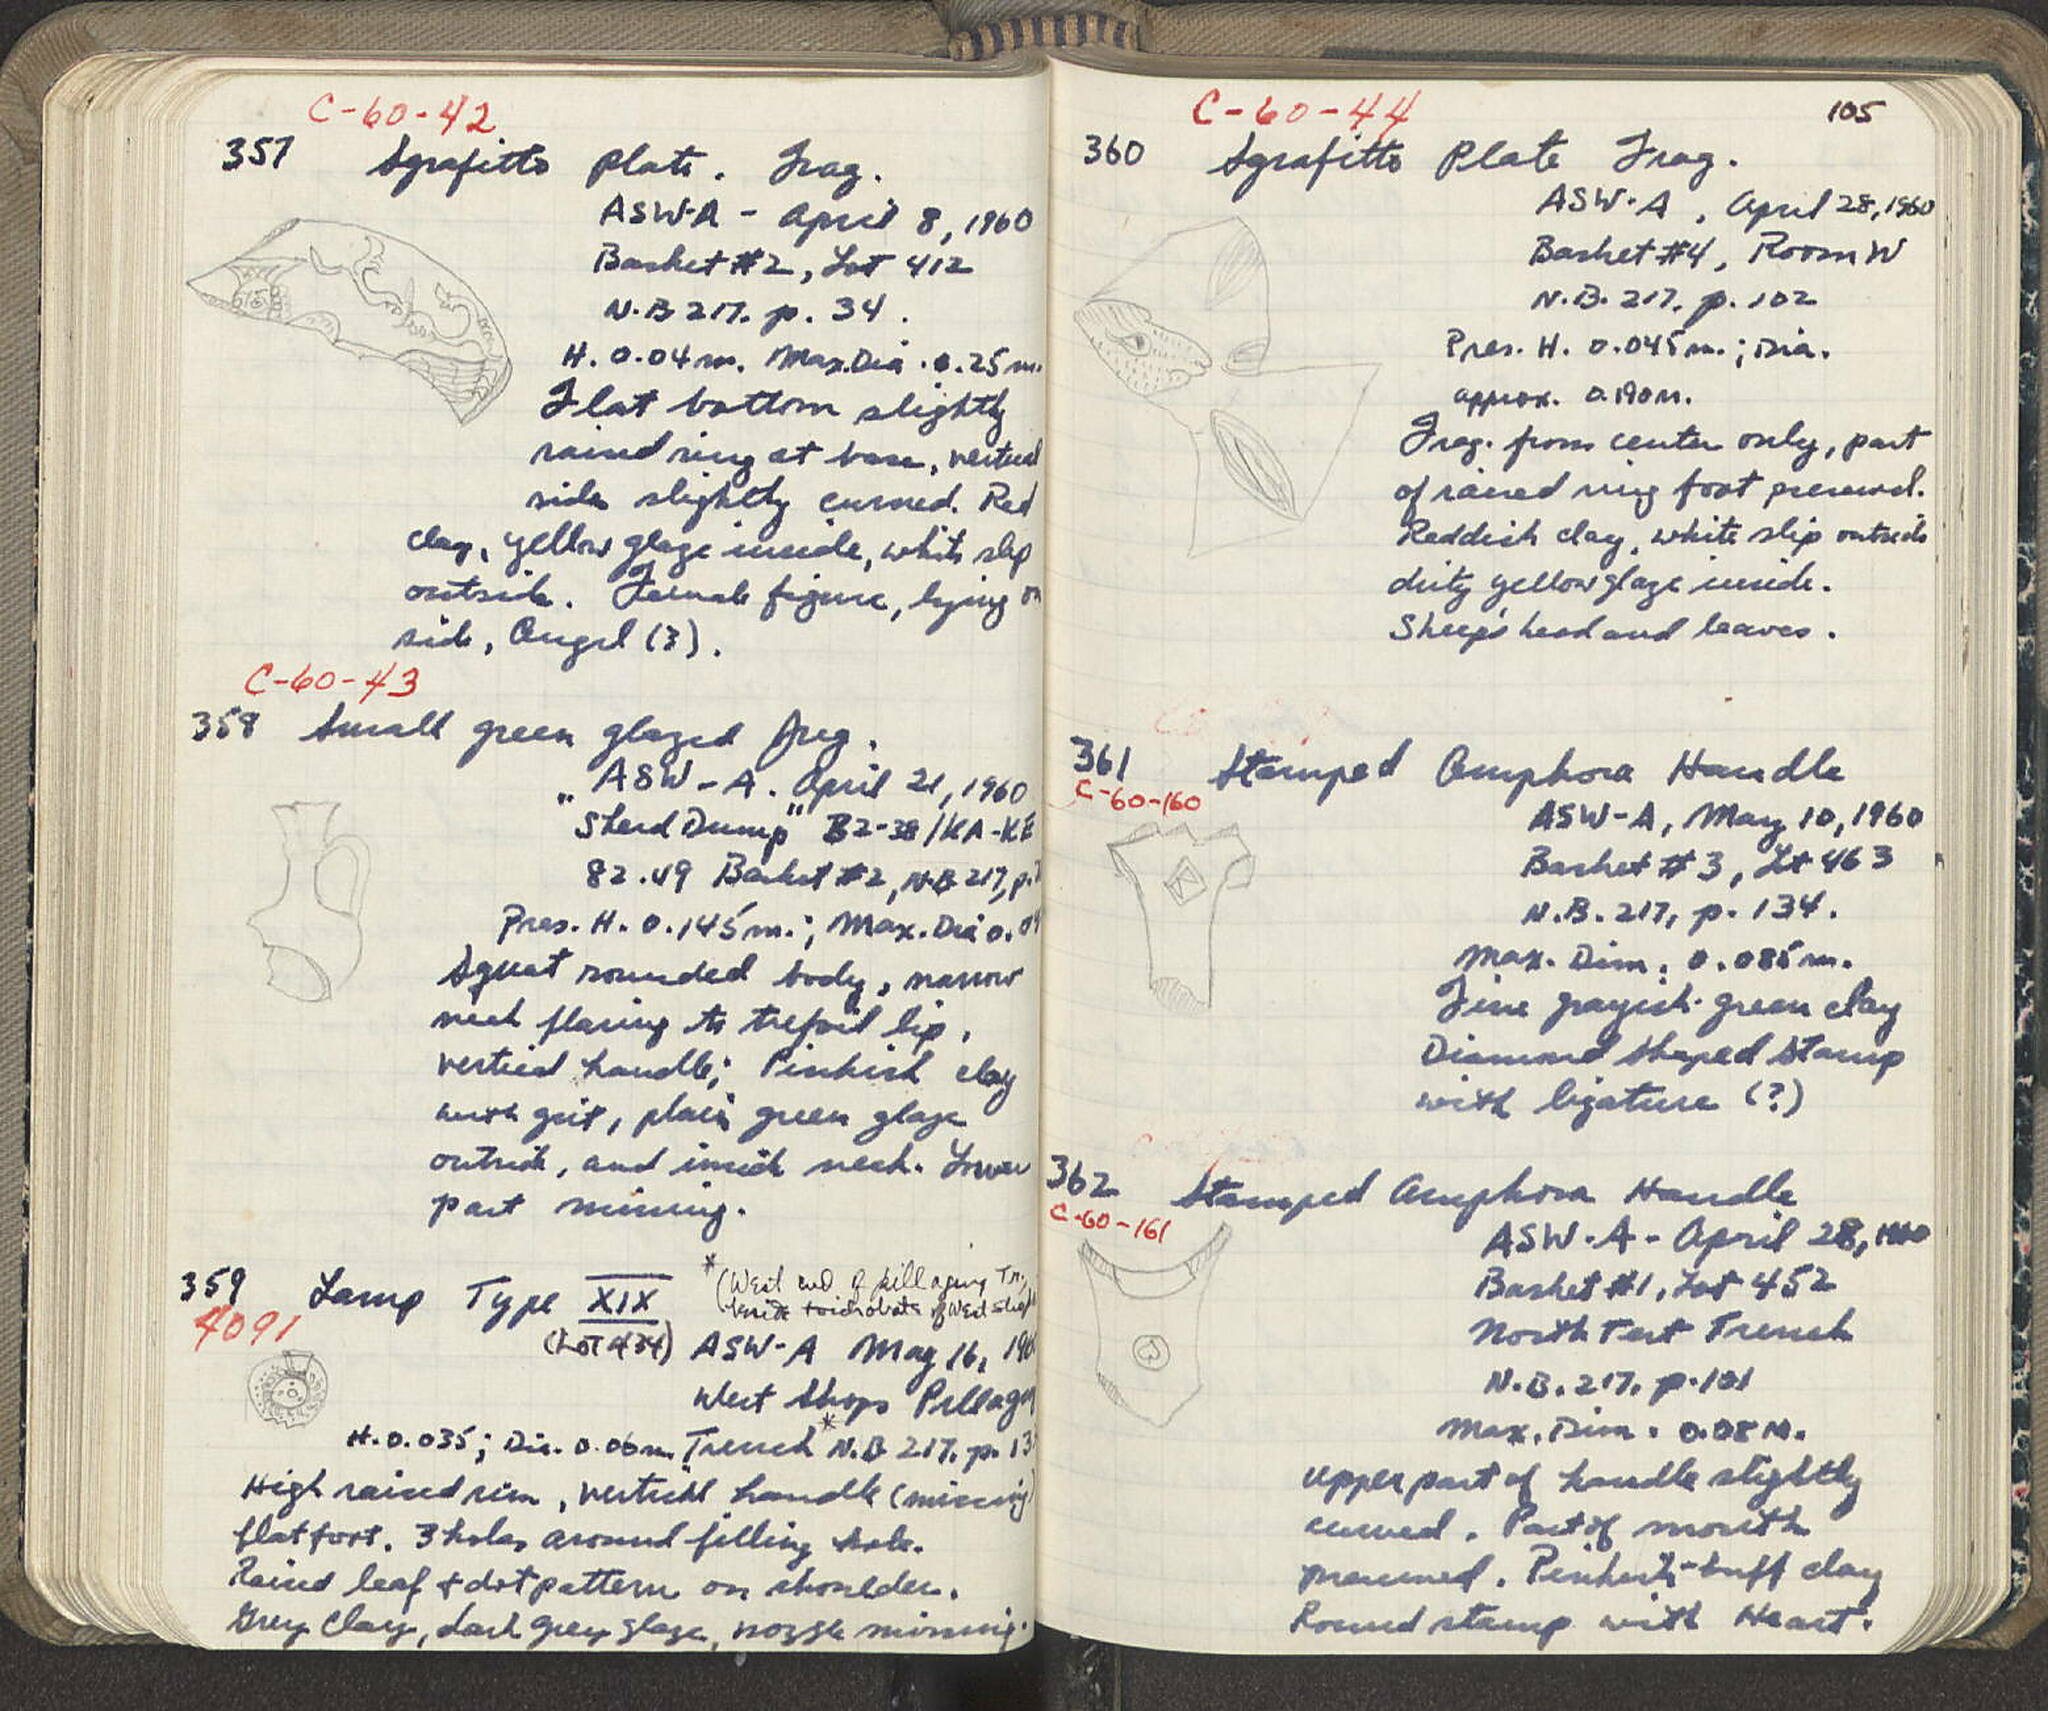 C-60-42
357 Sgrafitto Plate. Frag.
ASW-A - April 8, 1960
Basket #2, Lot 412
N.B 217. p. 34.
H. 0.04m. Max.Dia. 0.25m.
Flat bottom slightly
raised ring at base, vertical
side slightly curved. Red
clay, yellow glaze inside, white slip
outside. Female figure, lying on
side, Angel (?).
C-60-43
358 Small green glazed Jug.
ASW-A. April 21, 1960
"Sherd Dump" B2-38/KA-KE
82.49 Basket #2, N.B 217, p.
Pres. H. 0.145m.; Max. Dia 0.
Squat rounded body, narrow
neck flaring to trefoil lip,
vertical handle; Pinkish clay
with grit, plain green glaze
outside, and inside neck. Lower
part missing.
359 Lamp Type XIX
*(West end of pillaging Tr.
of West Shop
4091
(Lot 434) ASW-A May 16, 196
West Shops Pillagin
H. 0.035; Dia. 0.06m. Trench* N.B 217. p. 13
High raised rim, vertical handle (missing)
flat foot. 3 holes around filling hole.
Raised leaf & dot pattern on shoulder.
Grey Clay, dark grey glaze, nozzle missing.
105
C-60-44
360 Sgrafitto Plate Frag.
ASW-A, April 28, 1960
Basket #4, Room W
N.B. 217. p. 102
Pres. H. 0.045m.; Dia.
approx. 0.190m.
Frag. from center only, part
of raised ring foot preserved.
Reddish clay, white slip outside
dirty yellow glaze inside.
Sheep's head and leaves.
361 Stamped Amphora Handle
C-60-160
ASW-A, May 10, 1960
Basket #3, Lot 463
N.B. 217, p. 134.
Max. Dim. 0.085m.
Fine grayish-green clay
Diamond Shaped Stamp
with ligature (?)
362 Stamped Amphora Handle
C-60-161
ASW-A - April 28, 1960
Basket #1, Lot 452
North Test Trench
N.B. 217. p. 101
Max. Dim. 0.08 M.
Upper part of handle slightly
curved. Part of mouth
preserved. Pinkish-buff clay
Round stamp with Heart.